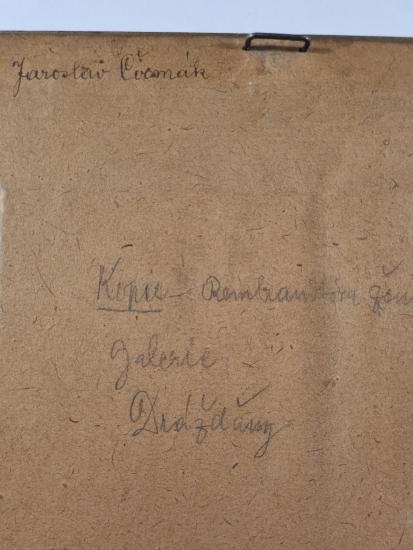 Jaroslav Čermák
Kopie - Rembrandtova
Galerie
Drážďany